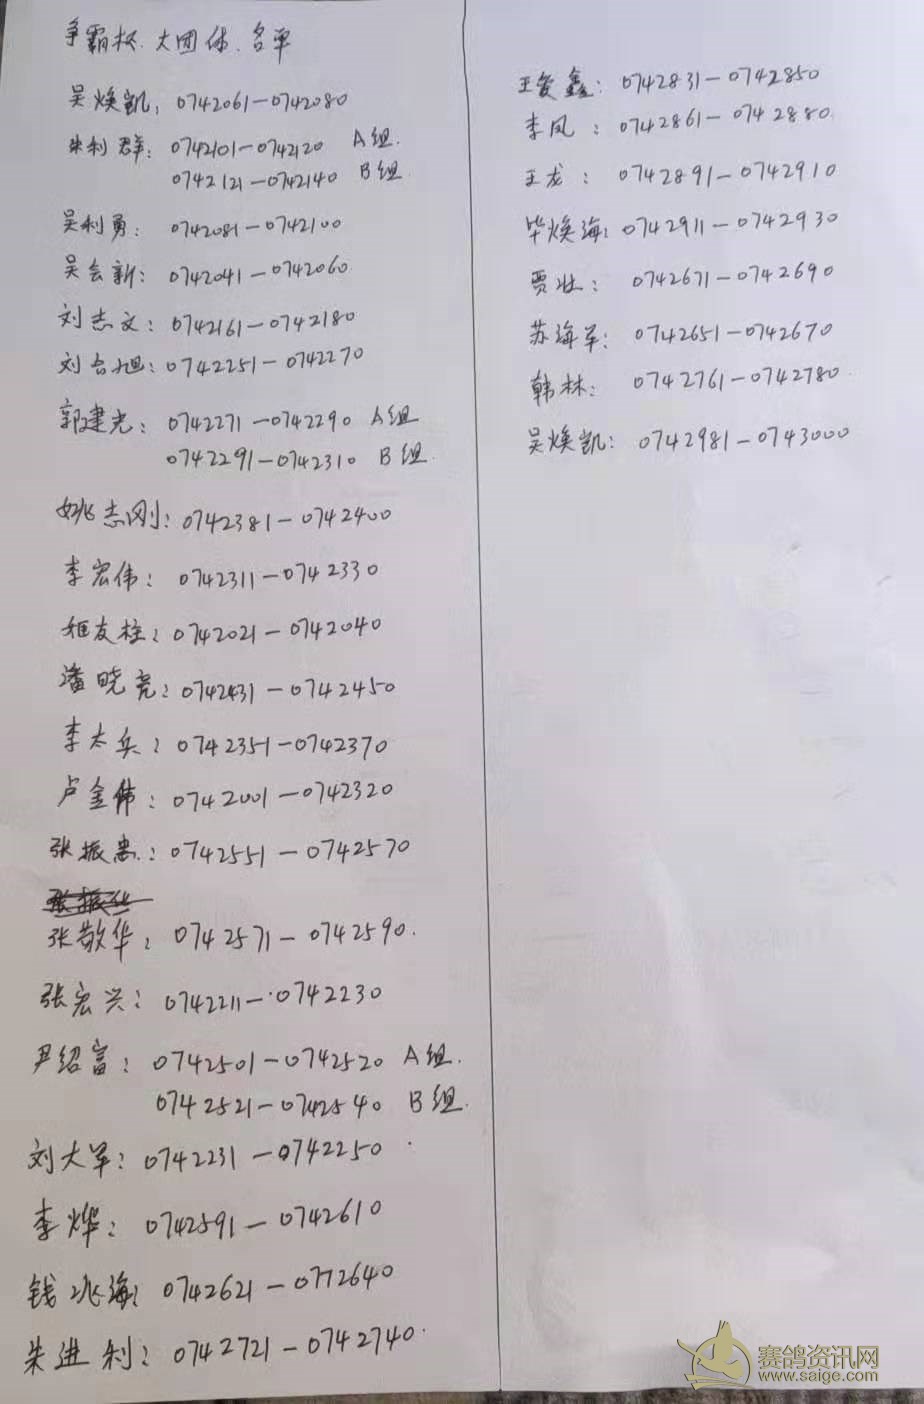 争霸杯.大团体.名单
吴焕凯: 0742061-0742080
朱利群: 0742101-0742120 A组.
0742121-0742140 B组
吴利勇: 0742081-0742100
吴会新: 0742041-0742060
刘志文: 0742161-0742180
刘合旭: 0742251-0742270
郭建光: 0742271-0742290 A组
0742291-0742310 B组
姚志刚: 0742381-0742400
李宏伟: 0742311-0742330
姬友柱: 0742021-0742040
潘晓亮: 0742431-0742450
李太兵: 0742351-0742370
卢金伟: 0742001-0742320
张振忠: 0742551-0742570
张振华
张敬华: 0742571-0742590.
张宏兴: 0742211-0742230
尹绍富: 0742501-0742520 A组.
0742521-0742540 B组.
刘大军: 0742231-0742250
李烨: 0742591-0742610
钱兆海: 0742621-0772640
朱进利: 0742721-0742740.
王爱鑫: 0742831-0742850
李凤: 0742861-0742880.
王龙: 0742891-0742910
毕焕海: 0742911-0742930
贾壮: 0742671-0742690
苏海军: 0742651-0742670
韩林: 0742761-0742780.
吴焕凯: 0742981-0743000
赛鸽资讯网
www.saige.com